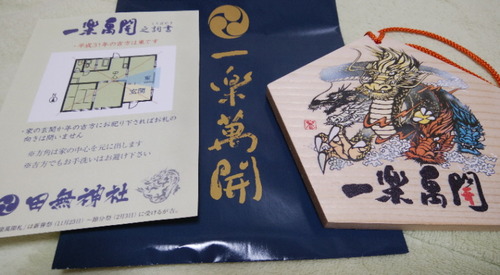 一楽萬開之訓書
-平成31年の吉方は東です-
玄関
・家の玄関か年の吉方にお祀り下されば
お札の向きは問いません
※方角は家の中心を元に出します
※吉方でもお手洗いはお避け下さい
田無神社
一楽萬開
一楽萬開